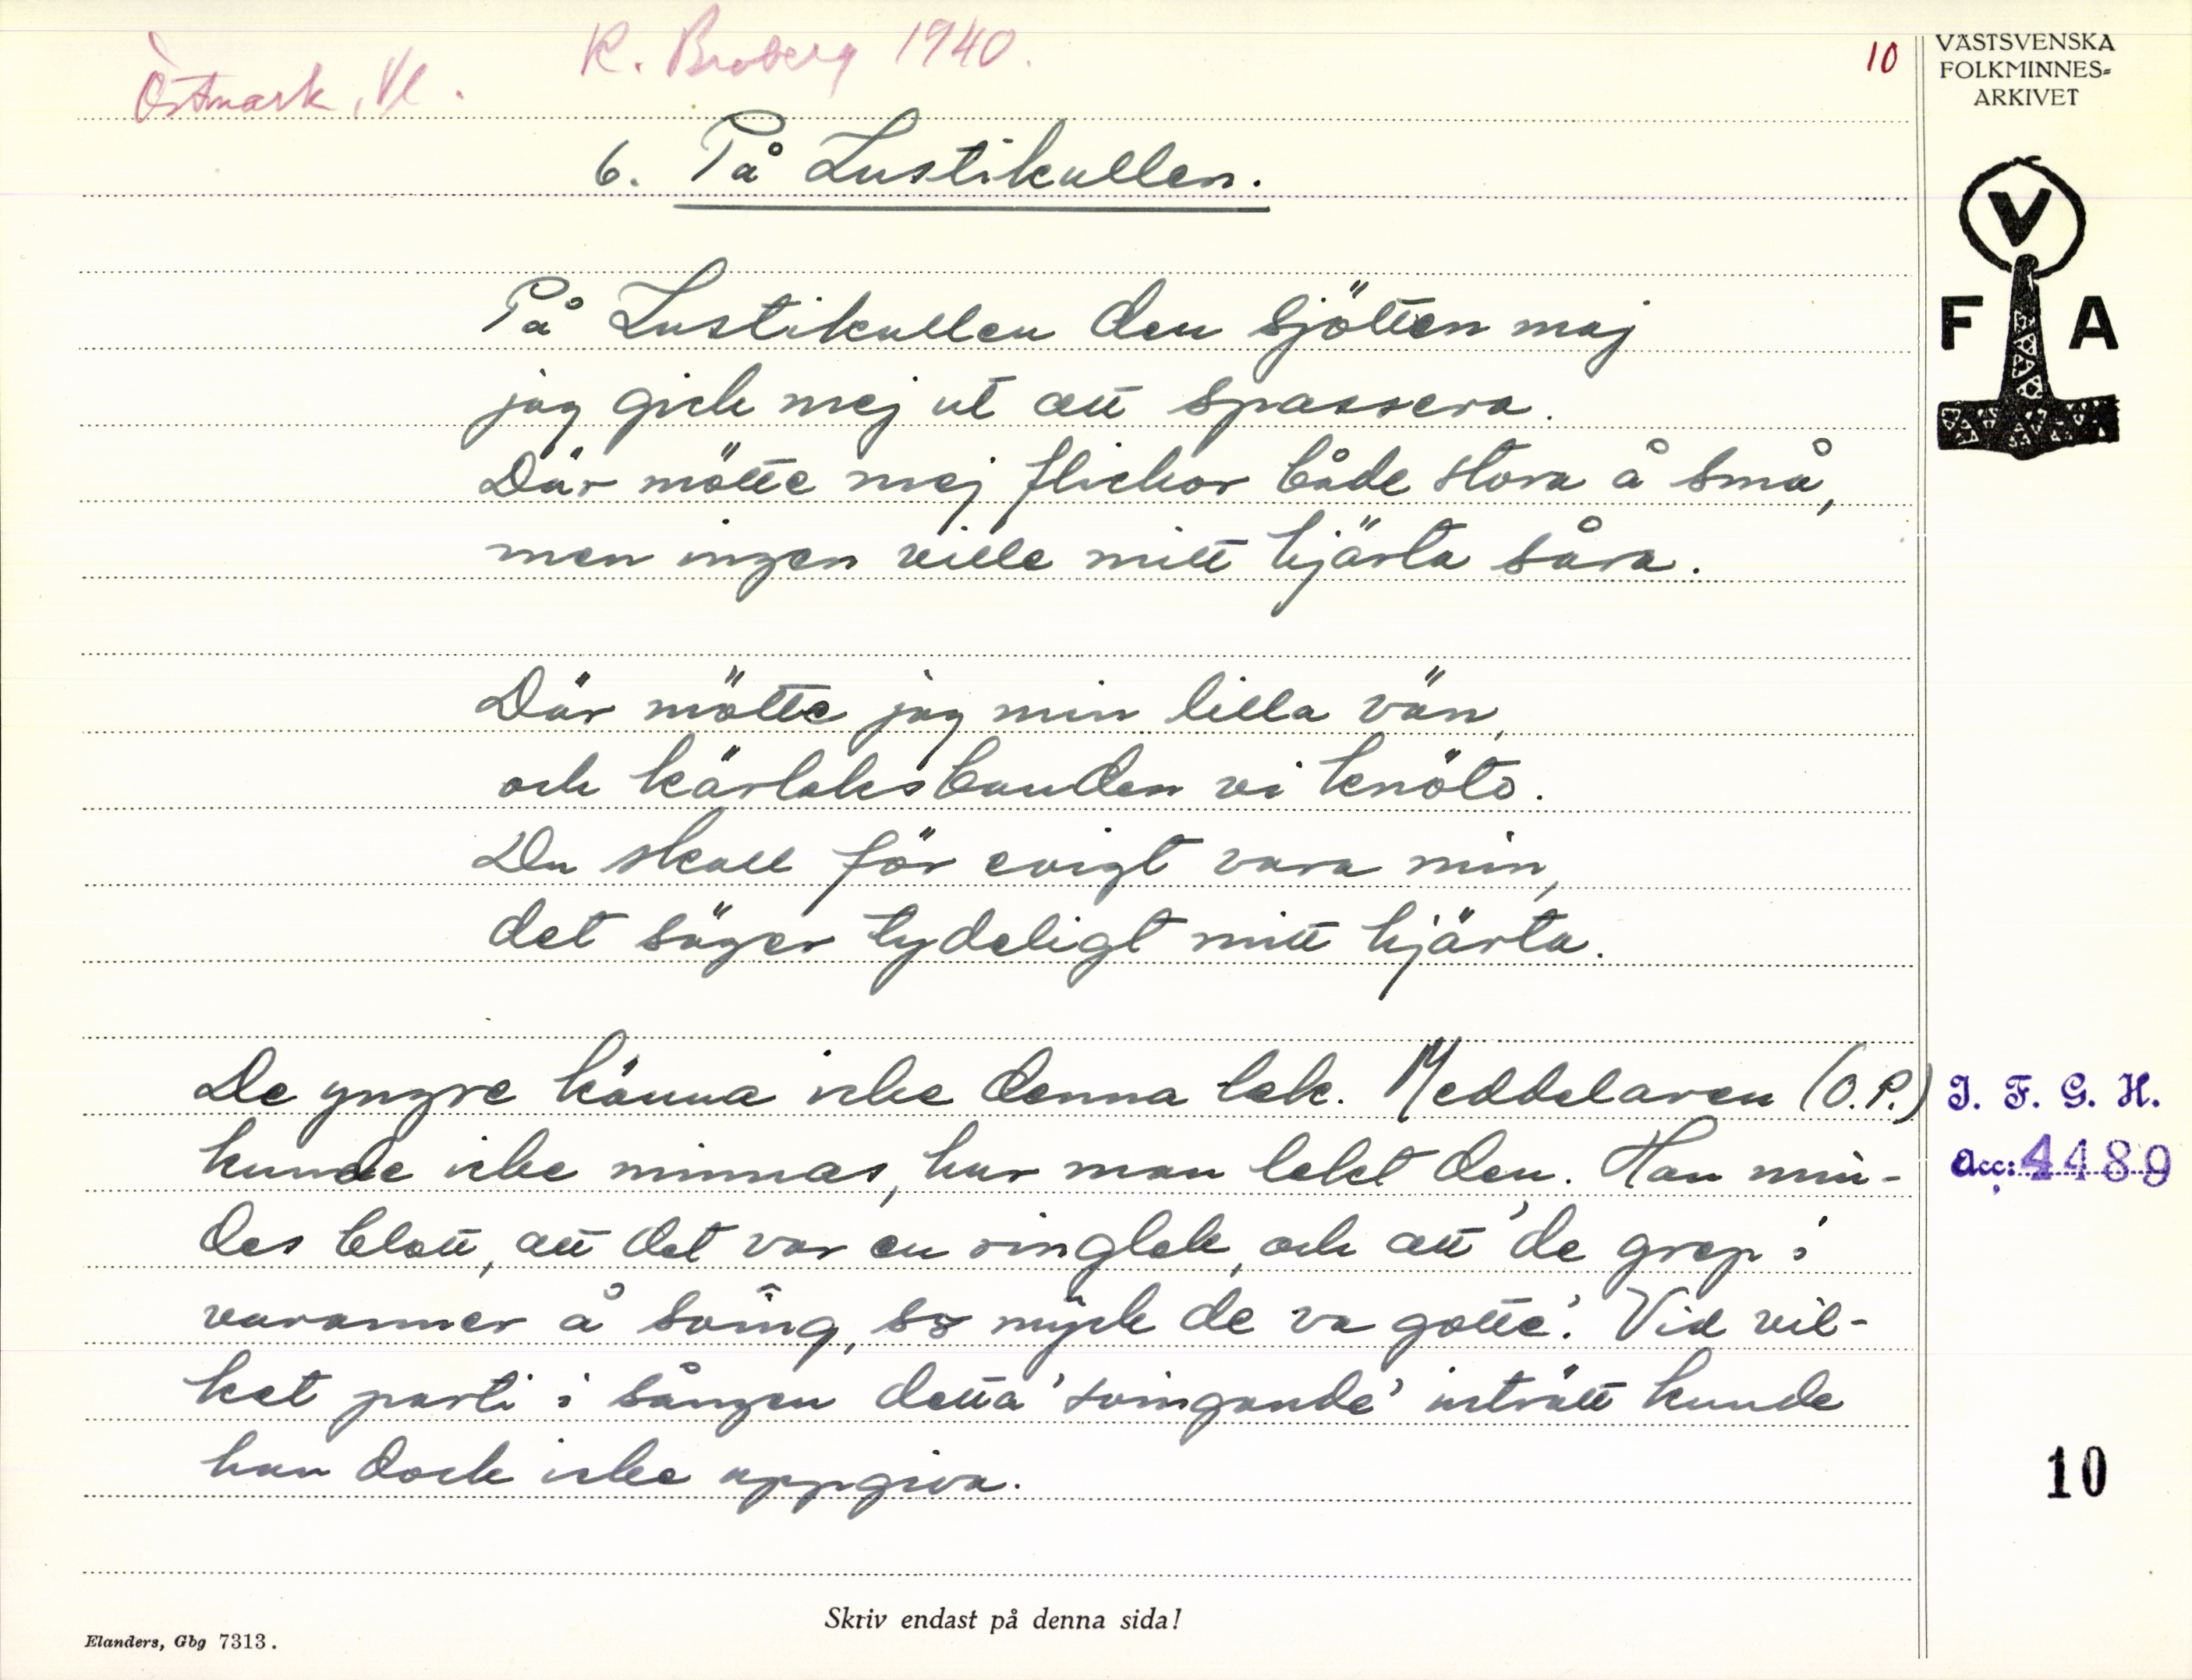 Östmark, Vl.
R. Broberg 1940.
10
VÄSTSVENSKA
FOLKMINNES-
ARKIVET
V
F A
6. På Lustikullen.
På Lustikullen den sjötten maj
jag gick mej ut att spassera.
Där mötte mej flickor både stora å små,
men ingen ville mitt hjärta såra.
Där mötte jag min lilla vän,
och kärleksbanden vi knöto.
Du skall för evigt vara min,
det säger tydeligt mitt hjärta.
De yngre känna icke denna lek. Meddelaren (O.P.)
kunde icke minnas, hur man lekt den. Han min-
des blott, att det var en ringlek, och att 'de grep i
varanner å svîng, so mÿck de va gotte'. Vid vil-
ket parti i sången detta 'svingande' inträtt kunde
han dock icke uppgiva.
I. F. G. H.
Acc: 4489
10
Skriv endast på denna sida!
Elanders, Gbg 7313.